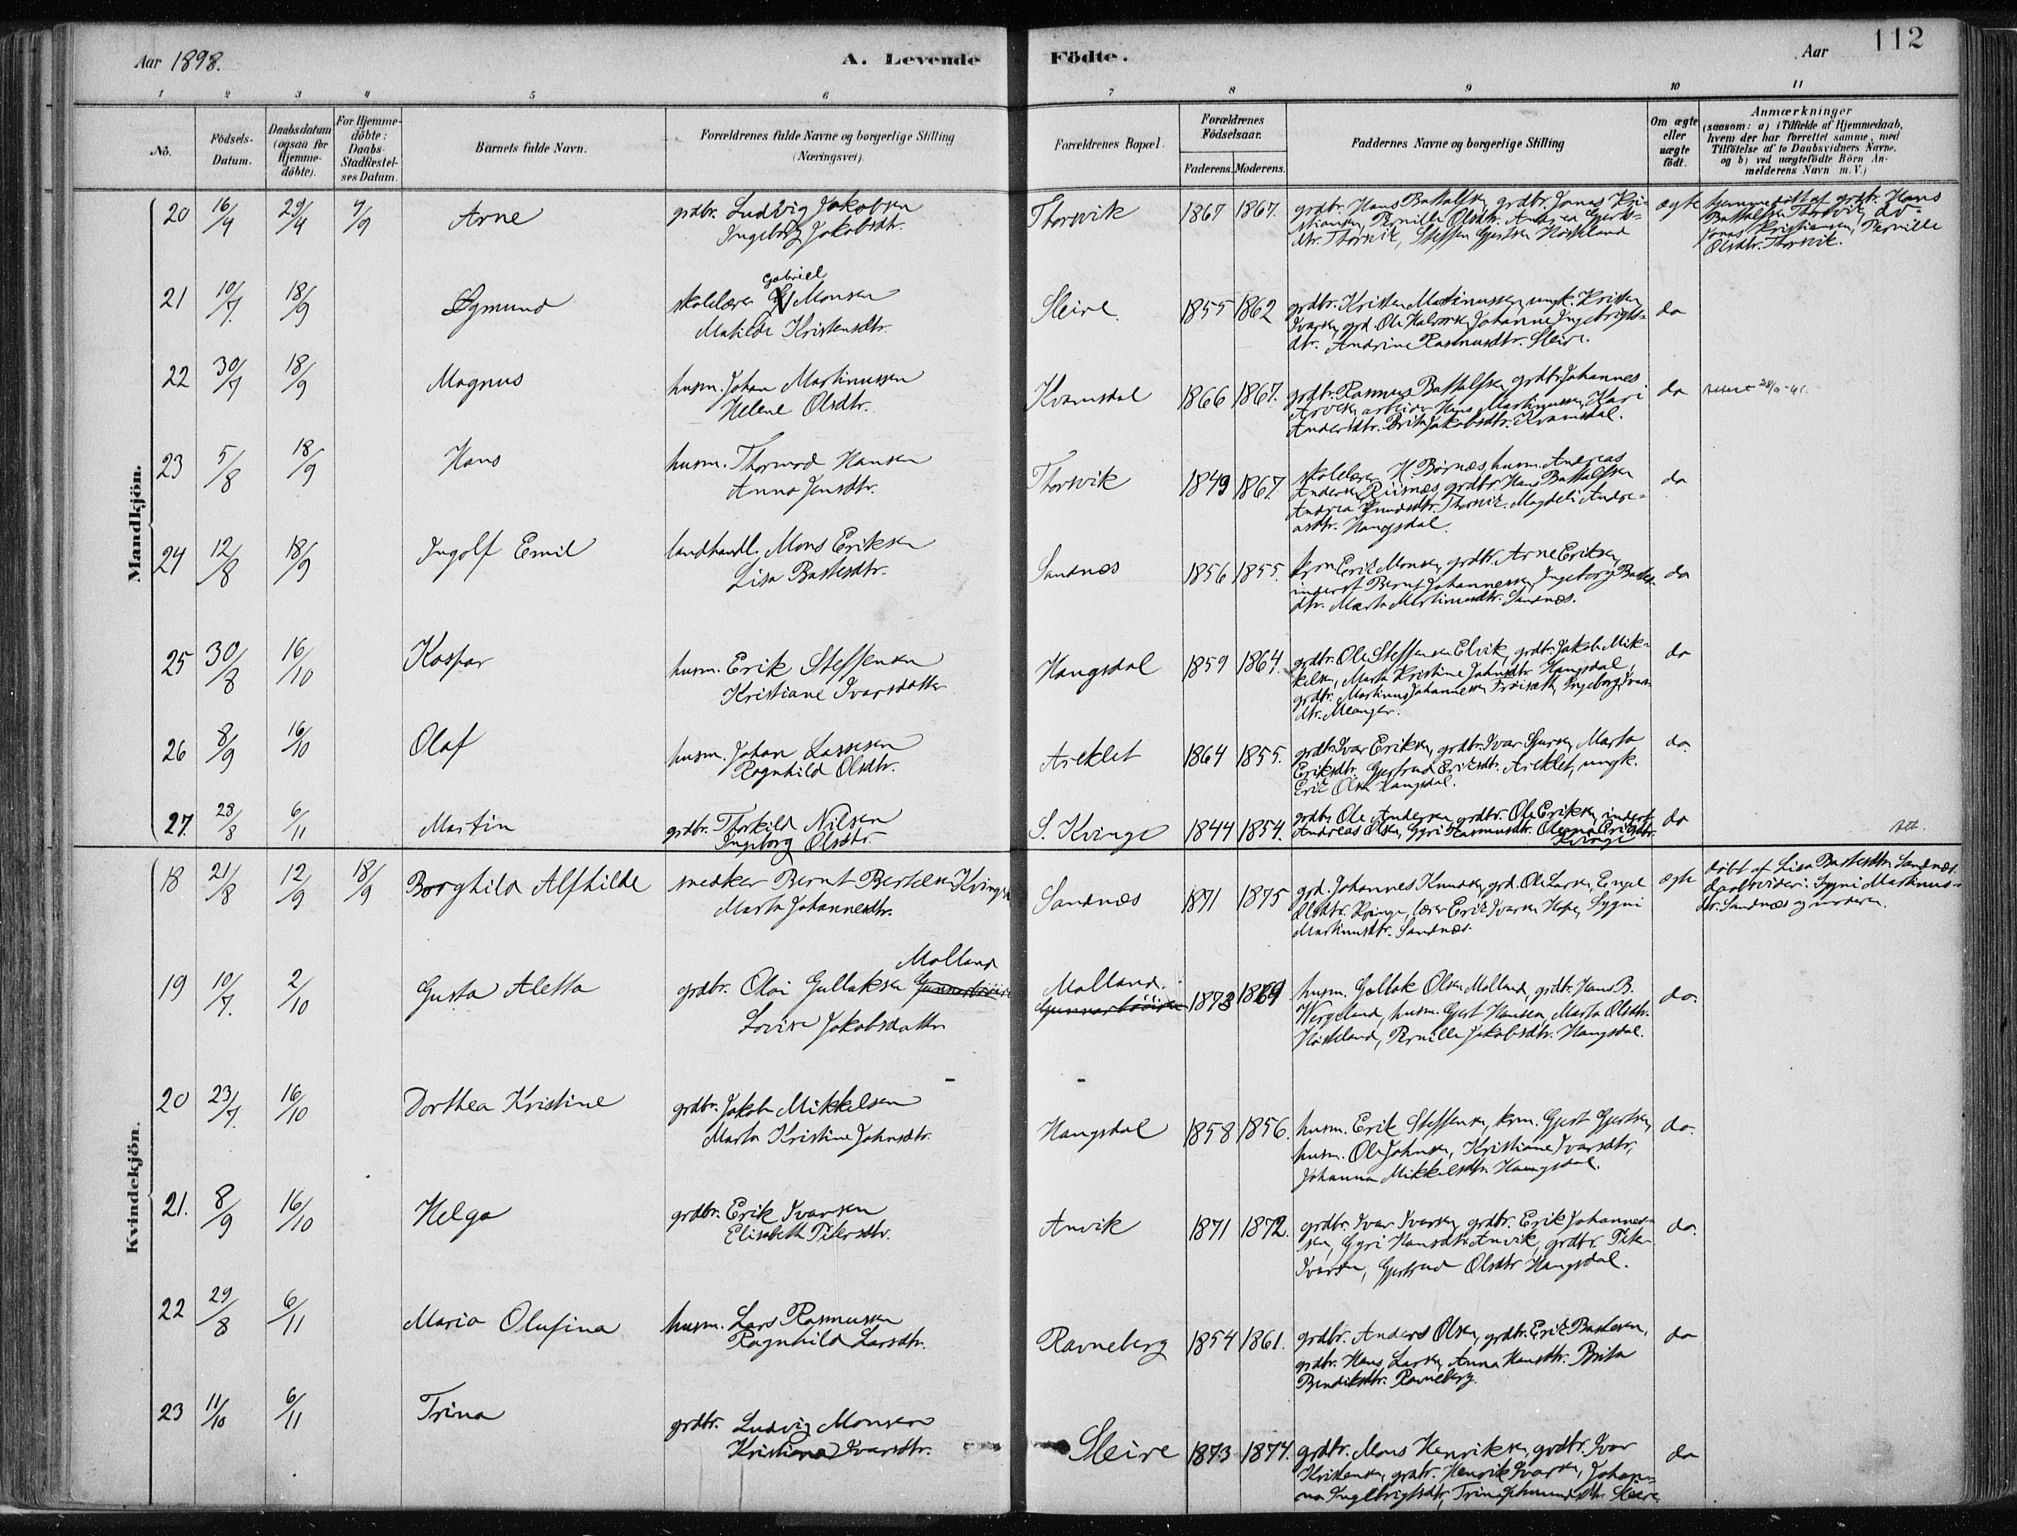 Aar 1898.
A. Levende
Födte.
Aar
112
1 2 3 4 5 6 7 8 9 10 11
No.
Födsels-
Datum.
Daabsdatum
(ogsaa for
Hjemme-
döbte).
For Hjemme-
döbte:
Daabs-
Stadfæstel-
ses Datum.
Barnets fulde Navn.
Forældrenes fulde Navne og borgerlige Stilling
(Næringsvei).
Forældrenes Bopæl.
Forældrenes
Födselsaar.
Faderens. Moderens.
Faddernes Navne og borgerlige Stilling
Om ægte
eller
uægte
födt.
Anmærkninger
(saasom: a) i Tilfælde af Hjemmedaab,
hvem der har forrettet samme, med
Tilföielse af to Daabsvidners Navne,
og b) ved uægtefödte Börn An-
melderens Navn m. V.)
Mandkjön.
20 16/4 29/4 4/9 Arne
grdbr. Ludvig Jakobsen
Ingeborg Jakobsdtr.
Thorsvik 1867 1867.
grdbr. Hans Battalfsen, grdbr. Jonas Kri-
stiansen, Pernille Olsdtr.
dtr. Thorsvik, Steffen Gjertsen Høsteland
ægte
hjemmedøbt af grdbr. Hans
Battalfsen Thorsvik, do-
Jonas Kristiansen, Pernille
Olsdtr. Thorsvik.
21 10/7. 18/9 Sigmund
Gabriel
skolelærer Monsen
Matilde Kristensdtr.
Sleire. 1855 1862
grdbr. Kristen Martinussen, ungk. Kristen
Ivarsen, grd. Ole Halvorsen, Johanne Ingebrigts-
dtr. Andrine Rasmusdtr. Sleire.
do
22 30/7 18/9 Magnus
husm. Johan Martinussen
Helene Olsdtr.
Kvamsdal 1866 1867.
grdbr. Rasmus Battalfsen, grdbr. Johannes
arbeider Hans Martinussen, Kari
Andersdtr. Brita Jakobsdtr. Kvamsdal.
do
23 5/8 18/9 Hans
husm. Thormod Hansen
Anna Jensdtr.
Thorsvik 1849 1867
skolelærer H. Børnæs, husm. Andreas
Andersen Risnæs, grdbr. Hans Battalfsen
Andrea Knudsdtr. Thorsvik. Magdeli Andre-
asdtr. Haugsdal.
do
24 12/8 18/9 Ingolf Emil
landhandl. Mons Eriksen
Lisa Bastesdtr.
Sandnæs 1856 1855.
Erik Monsen, grdbr. Arne Eriksen,
inderst Bernt Johannessen, Ingeborg Bastes-
dtr. Marta Martinusdtr. Sandnæs.
do
25 30/8 16/10 Kaspar
husm. Erik Steffensen
Kristiane Ivarsdatter
Haugsdal 1859 1864.
grdbr. Ole Steffensen Elvik, grdbr. Jakob Mik-
kelsen, Marta Kristine Johnsdtr. Haugsdal,
grdbr. Martinus Johannessen Frøiset, Ingeborg Ivars-
dtr. Mcanger.
do
26 8/9 16/10 Olaf
husm. Johan Lassesen
Ragnhild Olsdtr.
Areklet 1864 1855.
grdbr. Ivar Eriksen, grdbr. Ivar Marta
Eriksdtr. Gjertrud Eriksdtr. Areklet, ungk.
Erik Olsen Haugsdal.
do.
27. 28/8 6/11 Martin
grdbr. Thorkild Nilsen
Ingeborg Olsdtr.
S. Kvinge 1844 1854.
grdbr. Ole Andersen, grdbr. Ole Eriksen, inderst
Andreas Olsen, Gyri Rasmusdtr. Eriksdtr.
Kvinge
do
Kvindekjön.
18 21/8 12/9 18/9 Borghild Alfhilde
snedker Bernt Bertelsen Kvinge
Marta Johannesdtr.
Sandnæs 1871 1875
grd. Johannes Knudsen, grd. Ole Larsen, Engel
Olsdtr. Kvinge, lærer Erik Ivarsen Hope, Sygni
Martinusdtr. Sandnæs.
ægte
døbt af Lisa Bastesdtr. Sandnæs.
daabsvidner: Sygni Martinus-
dtr. Sandnæs og moderen.
19 10/7. 2/10 Gusta Aletta
Molland
grdbr. Olai Gullaksen
Lovise Jakobsdatter
Molland. 1873 1869
husm. Gullak Olsen Molland, grdbr. Hans B.
Wergeland, husm. Gjert Hansen, Marta Olsdtr.
Høsteland, Pernille Jakobsdtr. Haugsdal.
do.
20 23/7. 16/10 Dorthea Kristine
grdbr. Jakob Mikkelsen
Marta Kristine Johnsdtr.
Haugsdal 1858 1856.
husm. Erik Steffensen, Gjert Gjertsen,
husm. Ole Johnsen, Kristiane Ivarsdtr,
Johanna Mikkelsdtr. Haugsdal.
do.
21. 8/9 16/10 Helga
grdbr. Erik Ivarsen
Elisabeth Petersdtr.
Anvik 1871 1872.
grdbr. Ivar Ivarsen, grdbr. Erik Johannes-
sen, Gyri Hansdtr. Anvik, grdbr. Peter
Ivarsen, Gjertrud Olsdtr Haugsdal.
do.
22 29/8 6/11 Maria Olufina
husm. Lars Rasmussen
Ragnhild Larsdtr.
Ravneberg 1854 1861.
grdbr. Anders Olsen, grdbr. Erik Bastesen,
grdbr. Hans Larsen, Anna Hansdtr. Brita
Bendiksdtr. Ravneberg.
do
23 11/10 6/11 Trina
grdbr. Ludvig Monsen
Kristiana Ivarsdtr.
Sleire 1873 1874.
grdbr. Mons Henriksen, grdbr. Ivar
Kristensen, grdbr. Henrik Ivarsen, Johan-
na Ingebrigtsdtr, Trina Sleire.
do